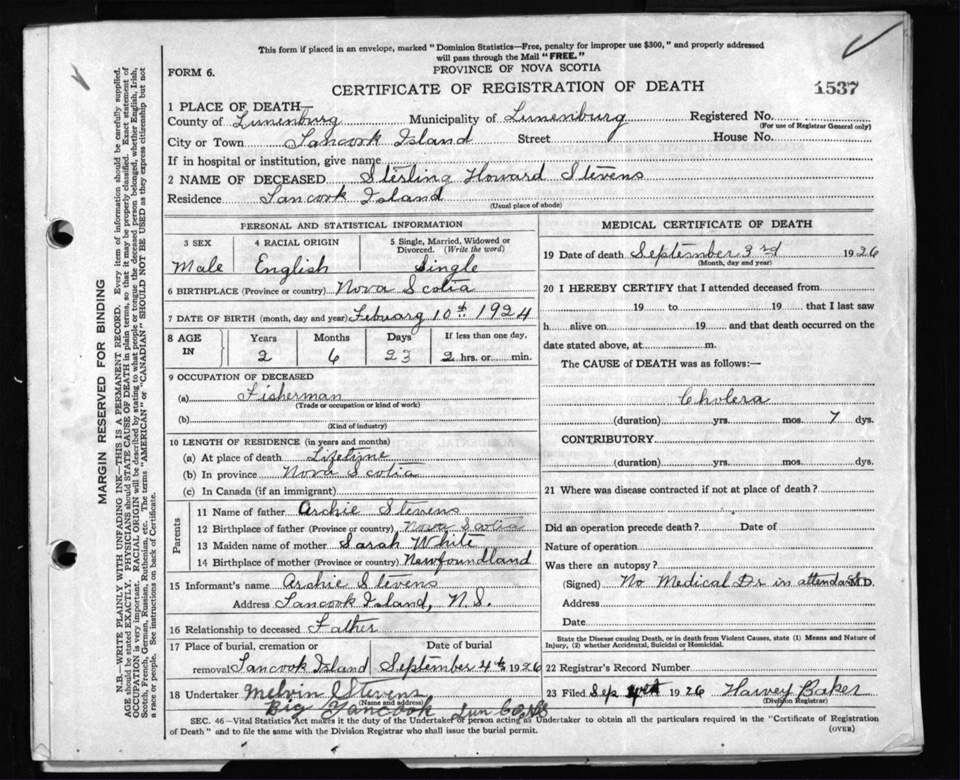 This form if placed in an envelope, marked "Dominion Statistics—Free, penalty for improper use $300," and properly addressed
will pass through the Mail "FREE."
PROVINCE OF NOVA SCOTIA
FORM 6.
CERTIFICATE OF REGISTRATION OF DEATH
1537
1 PLACE OF DEATH—
County of Lunenburg Municipality of Lunenburg Registered No.
(For use of Registrar General only)
City or Town Tancook Island Street House No.
If in hospital or institution, give name
2 NAME OF DECEASED Sterling Howard Stevens
Residence Tancook Island
(Usual place of abode)
PERSONAL AND STATISTICAL INFORMATION
3 SEX 4 RACIAL ORIGIN 5 Single, Married, Widowed or
Divorced. (Write the word)
Male English Single
6 BIRTHPLACE (Province or country) Nova Scotia
7 DATE OF BIRTH (month, day and year) Febuary 10th 1924
8 AGE IN Years Months Days If less than one day,
2 6 23 2 hrs. or min.
9 OCCUPATION OF DECEASED
(a) Fisherman
(Trade or occupation or kind of work)
(b)
(Kind of industry)
10 LENGTH OF RESIDENCE (in years and months)
(a) At place of death Lifetime
(b) In province Nova Scotia
(c) In Canada (if an immigrant)
Parents
11 Name of father Archie Stevens
12 Birthplace of father (Province or country) Nova Scotia
13 Maiden name of mother Sarah White
14 Birthplace of mother (Province or country) Newfoundland
15 Informant's name Archie Stevens
Address Tancook Island, N.S.
16 Relationship to deceased Father
17 Place of burial, cremation or Date of burial
removal Tancook Island September 4th 1926
18 Undertaker Melvin Stevens
(Name and address)
Big Tancook Lun Co
MEDICAL CERTIFICATE OF DEATH
19 Date of death September 3rd 1926
(Month, day and year)
20 I HEREBY CERTIFY that I attended deceased from
19 to 19 that I last saw
h alive on 19 and that death occurred on the
date stated above, at m.
The CAUSE of DEATH was as follows:—
Cholera
(duration) yrs. mos. 7 dys.
CONTRIBUTORY
(duration) yrs. mos. dys.
21 Where was disease contracted if not at place of death?
Did an operation precede death? Date of
Nature of operation
Was there an autopsy?
(Signed) No Medical Dr in attendant M.D.
Address
Date
State the Disease causing Death, or in death from Violent Causes, state (1) Means and Nature of
Injury, (2) whether Accidental, Suicidal or Homicidal.
22 Registrar's Record Number
23 Filed Sep 1926 Harvey Baker
(Division Registrar)
SEC. 46—Vital Statistics Act makes it the duty of the Undertaker or person acting as Undertaker to obtain all the particulars required in the "Certificate of Registration
of Death" and to file the same with the Division Registrar who shall issue the burial permit. (OVER)
MARGIN RESERVED FOR BINDING
N.B.—WRITE PLAINLY WITH UNFADING INK—THIS IS A PERMANENT RECORD. Every item of information should be carefully supplied.
AGE should be stated EXACTLY. PHYSICIANS should STATE CAUSE OF DEATH in plain terms, so that it may be properly classified. Exact statement of
OCCUPATION is very important. RACIAL ORIGIN will be described by stating to what people or tongue the deceased person belonged, whether English, Irish,
Scotch, French, German, Russian, Ruthenian, etc. The terms "AMERICAN" or "CANADIAN" SHOULD NOT BE USED as they express citizenship but not
a race or people. See instructions on back of Certificate.